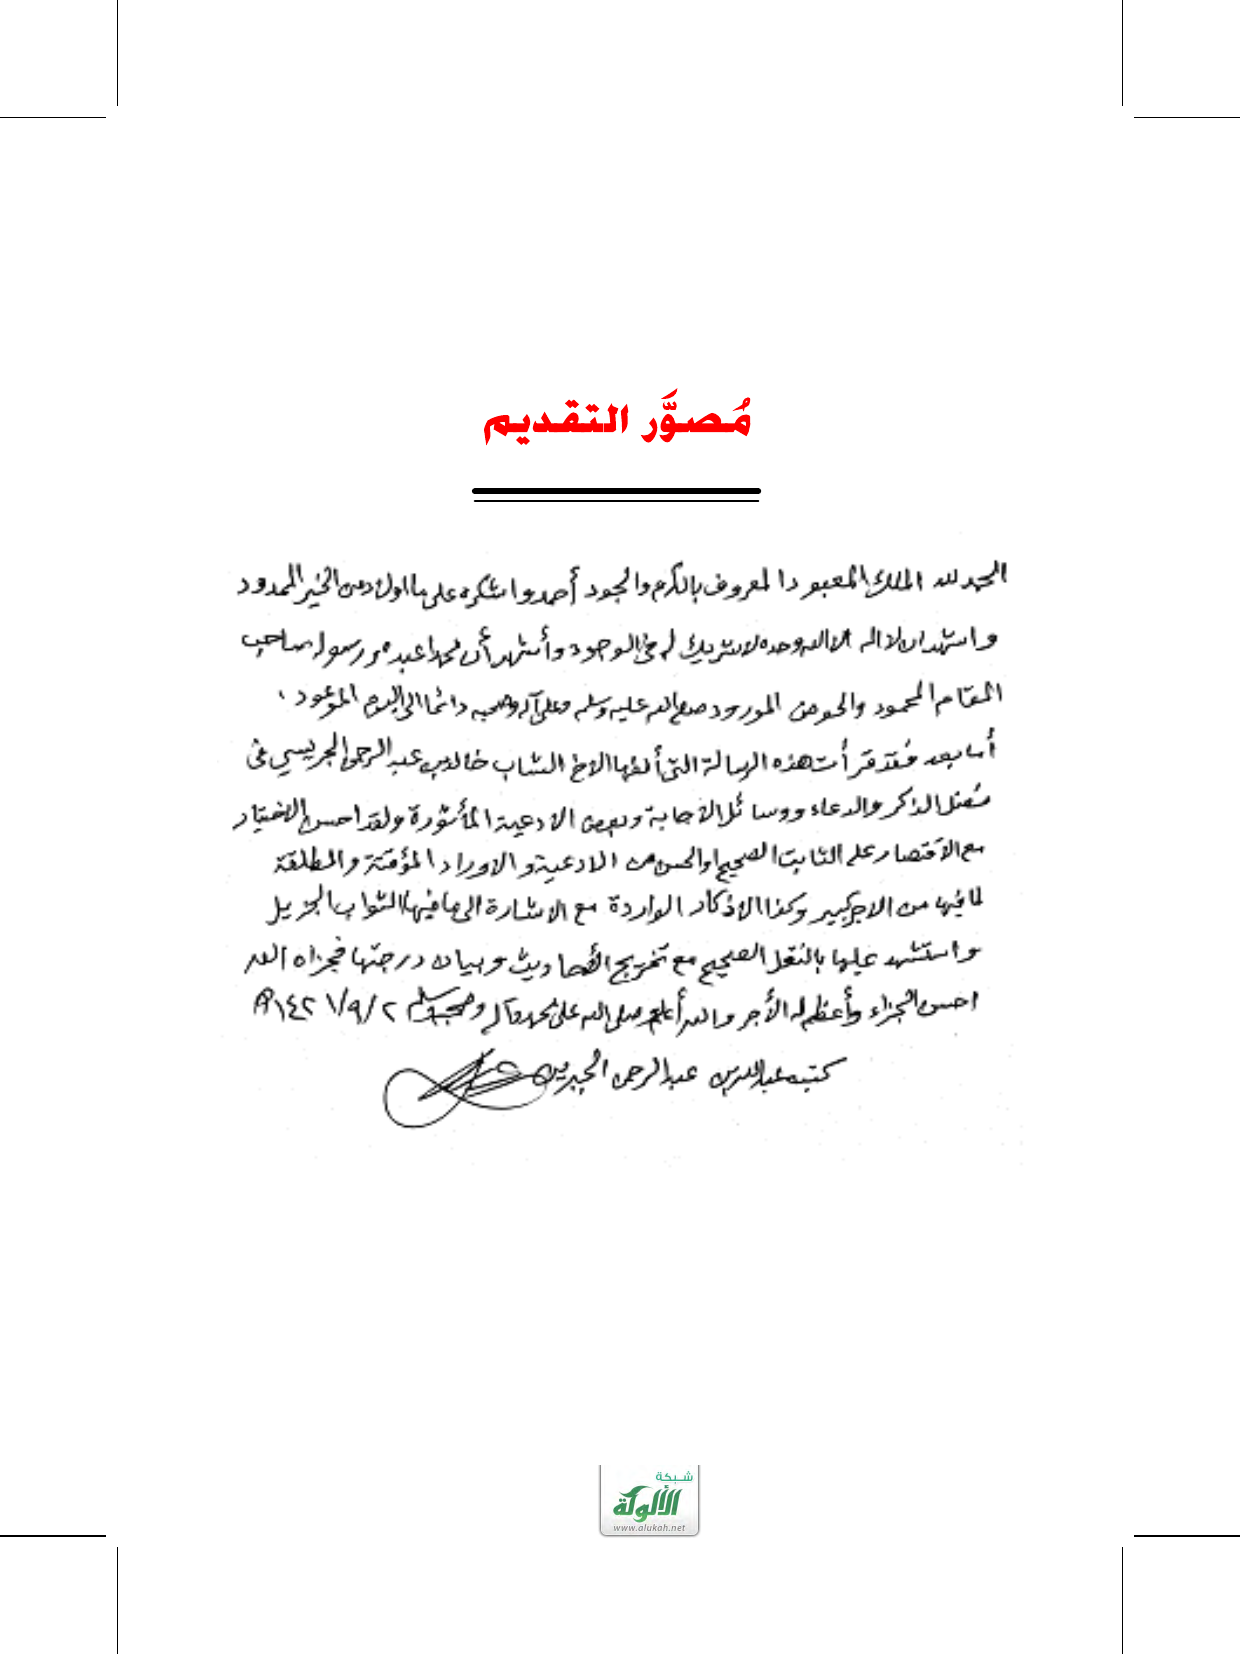 مُصوَّر التقديم
الحمد لله الملك المعبود المعروف بالكرم والجود أحمده واشكره على ما اولاه من الخير الممدود
واشهد ان لا اله الا الله وحده لا شريك له في الوجود وأشهد أن محمدا عبده ورسوله صاحب
المقام المحمود والحوض المورود صلى الله عليه وسلم وعلى آله وصحبه دائما الى اليوم الموعود ،
أما بعد فقد قرأت هذه الرسالة التي ألفها الاخ الشاب خالد بن عبد الرحمن الجريسي في
فضل الذكر والدعاء ووسائل الاجابة وبعض الادعية المأثورة ولقد احسن الاختيار
مع الاقتصار على الثابت الصحيح او الحسن من الادعية والاوراد المؤقتة والمطلقة
لما فيها من الاجر كبير وكذا الاذكار الواردة مع الاشارة الى ما فيها الثواب الجزيل
واستشهد عليها بالنقل الصحيح مع تخريج الأحاديث وبيان درجتها فجزاه الله
احسن الجزاء وأعظم له الأجر والله أعلم وصلى الله على محمد وآله وصحبه وسلم ١٤٢١/٩/٢هـ
كتبه عبد الله بن عبد الرحمن الجبرين
شبكة
الألوكة
www.alukah.net